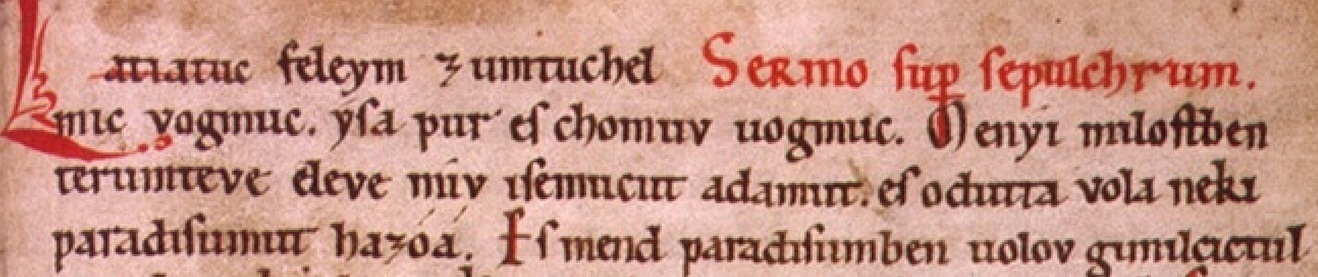 Latiatuc feleym ȝumtuchel Sermo ſup ſepulchrum.
mic vogmuc. yſa pur eſ chomuv uogmuc. Menyi miloſtben
terumteve eleve miv iſemucut adamut. eſ odutta vola neki
paradiſumut hazóá. Eſ mend paradiſumben uolov gimilcictul